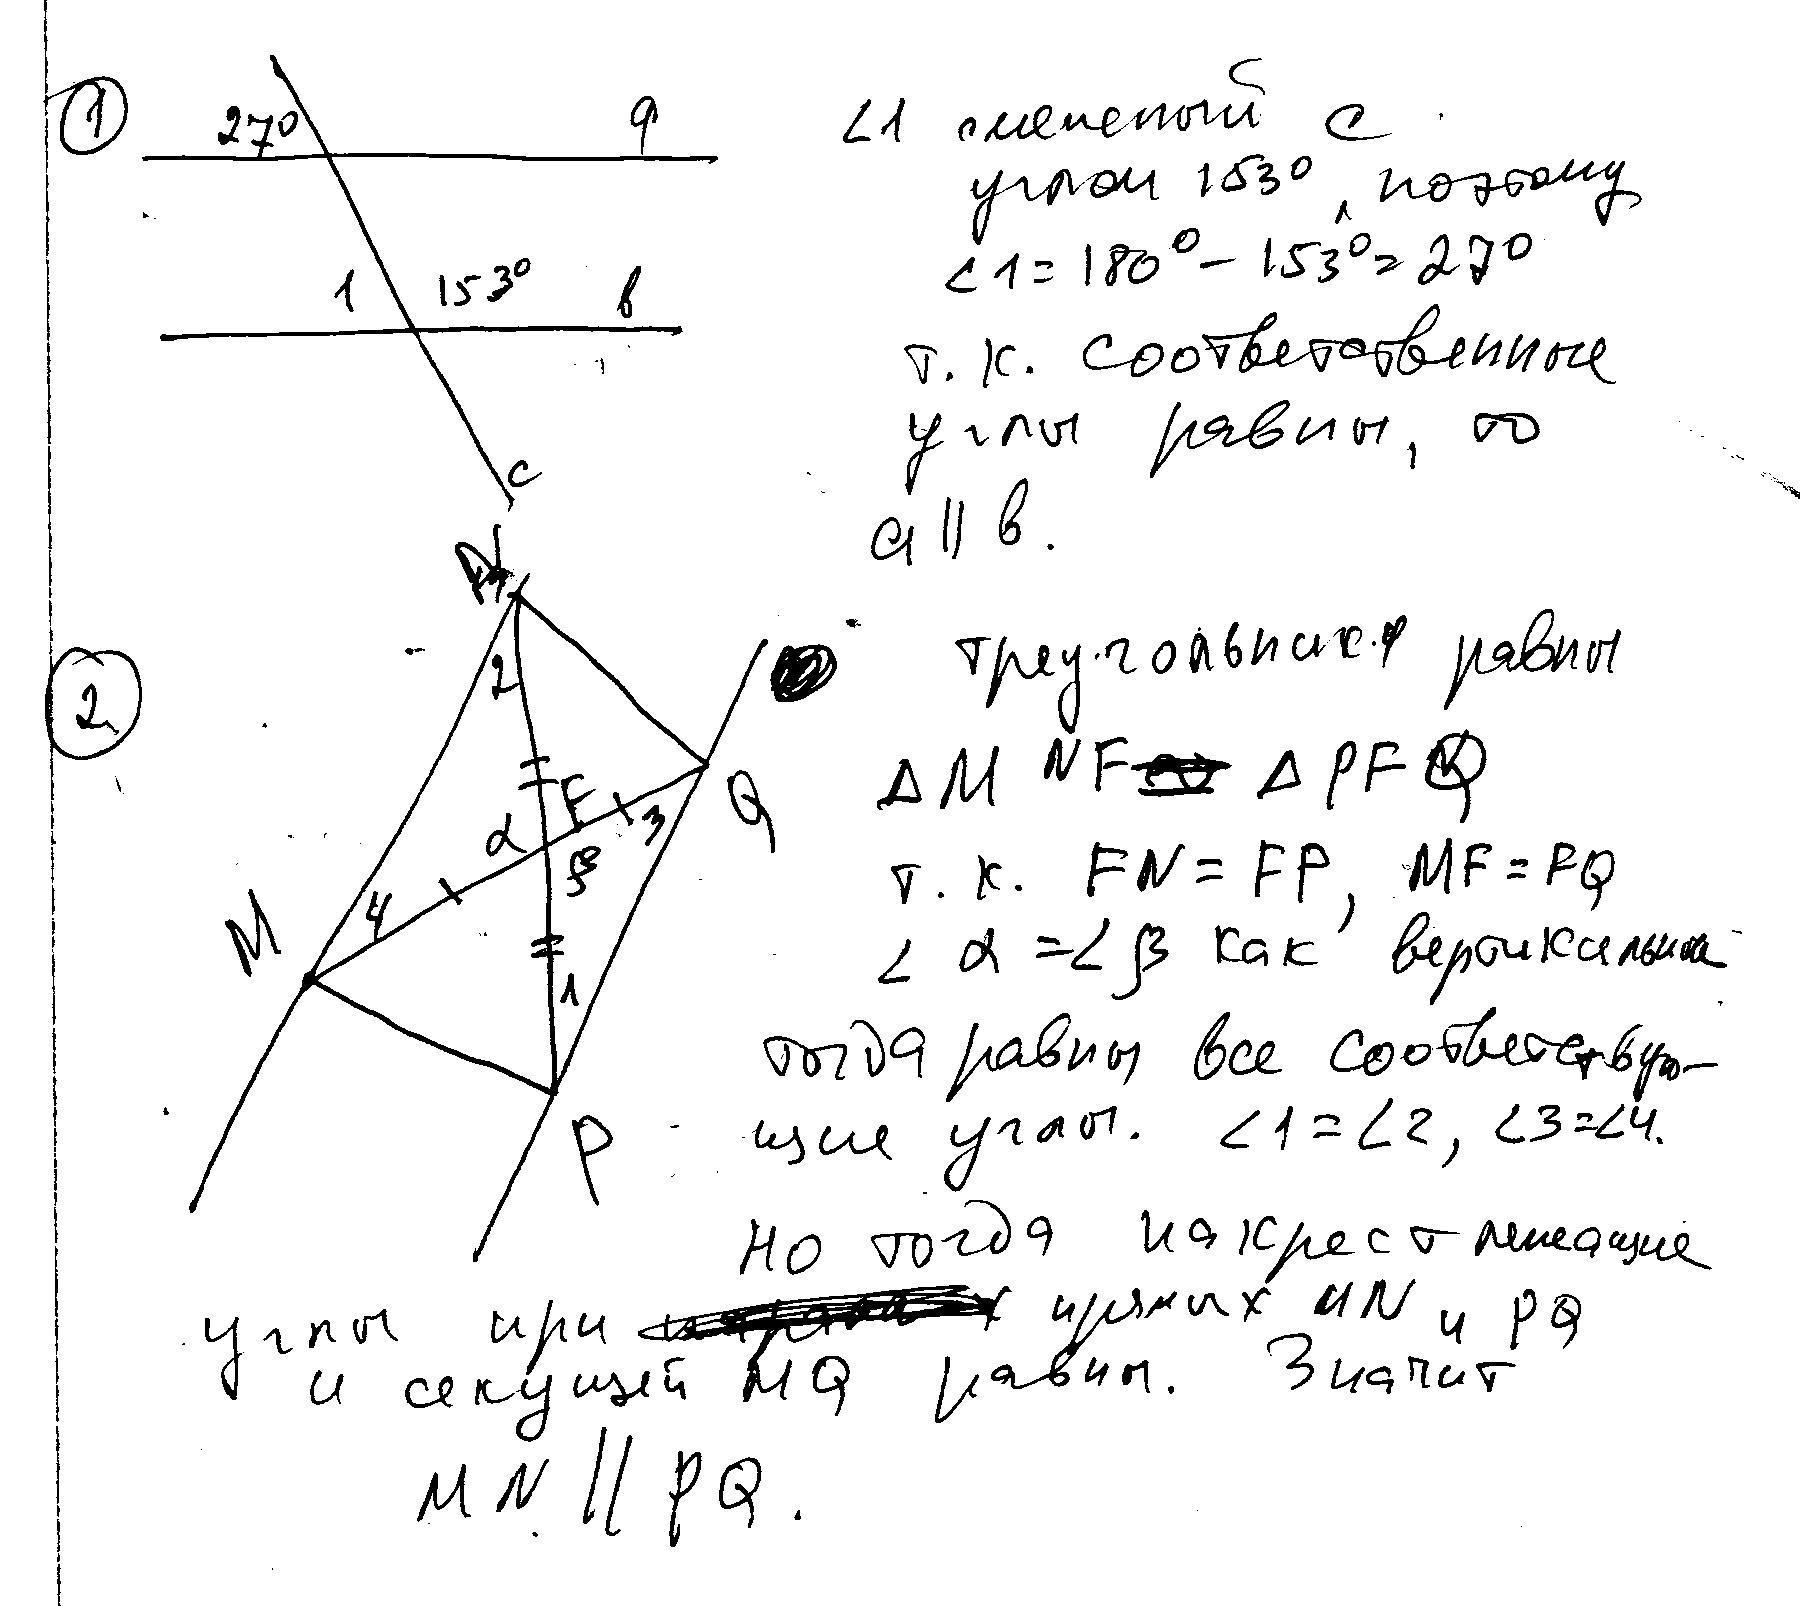 1
27° a
1 153° b
c
∠1 смежный с
углом 153°, поэтому
∠1 = 180° - 153° = 27°
т.к. соответственные
углы равны, то
a || b.
2
N
2
F
3
Q
α
β
4
M
1
P
треугольники равны
Δ MNF Δ PFQ
т.к. FN = FP, MF = FQ
∠ α = ∠ β как вертикальные
тогда равны все соответствую-
щие углы. ∠1 = ∠2, ∠3 = ∠4.
Но тогда накрест лежащие
углы при прямых MN и PQ
и секущей MQ равны. Значит
MN || PQ.